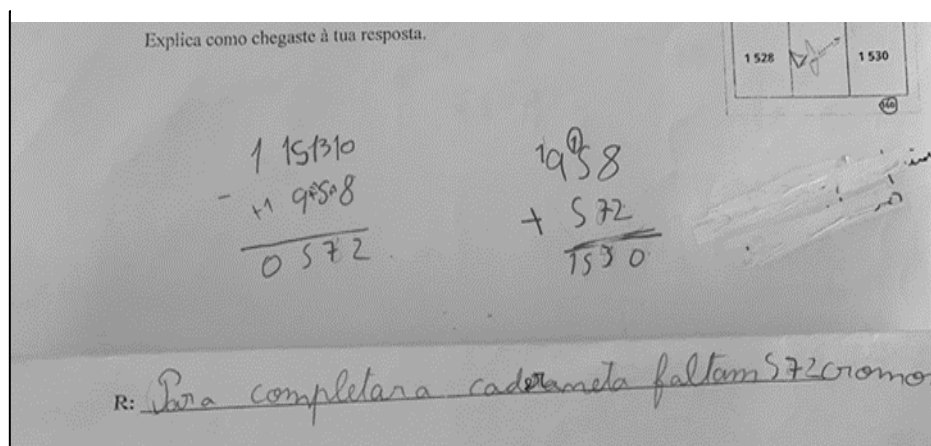 Explica como chegaste à tua resposta.
1 528
1 530
160
1 15 13 10
- +1 9 +5 8
0 5 7 2
1958
+ 572
1530
R: Para completar a caderameta faltam 572 cromo